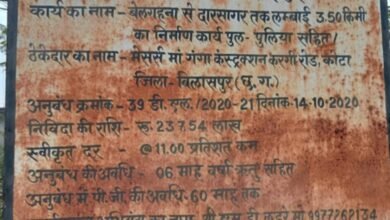 कार्य का नाम - बेलगहना से दारसागर तक लम्बाई 3.50 किमी
का निर्माण कार्य पुल- पुलिया सहित/
ठेकेदार का नाम - मेसर्स मां गंगा कंस्ट्रक्शन करगी रोड, कोटा
जिला- बिलासपुर (छ.ग.)
अनुबंध क्रमांक - 39 डी. एल. /2020-21 दिनांक-14-10-2020
निविदा की राशि - रू. 237.54 लाख
स्वीकृत दर - @11.00 प्रतिशत कम
अनुबंध की अवधि - 06 माह वर्षा ऋतु सहित
अनुबंध में पी.जी. की अवधि- 60 माह तक